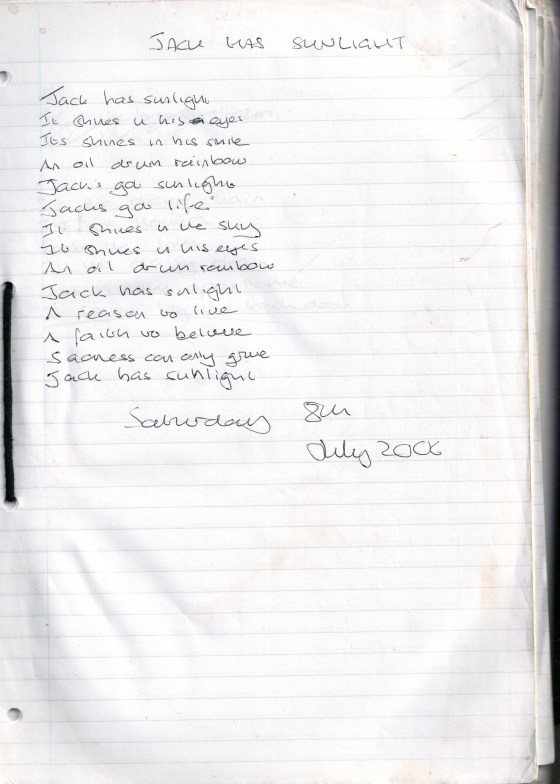 JACK HAS SUNLIGHT
Jack has sunlight
It shines in his eyes
Its shines in his smile
An oil drum rainbow
Jack's got sunlight
Jacks got life
It shines in the sky
It shines in his eyes
An oil drum rainbow
Jack has sunlight
A reason to live
A faith to believe
Sadness can only
Jack has sunlight
Saturday 8th
July 2006